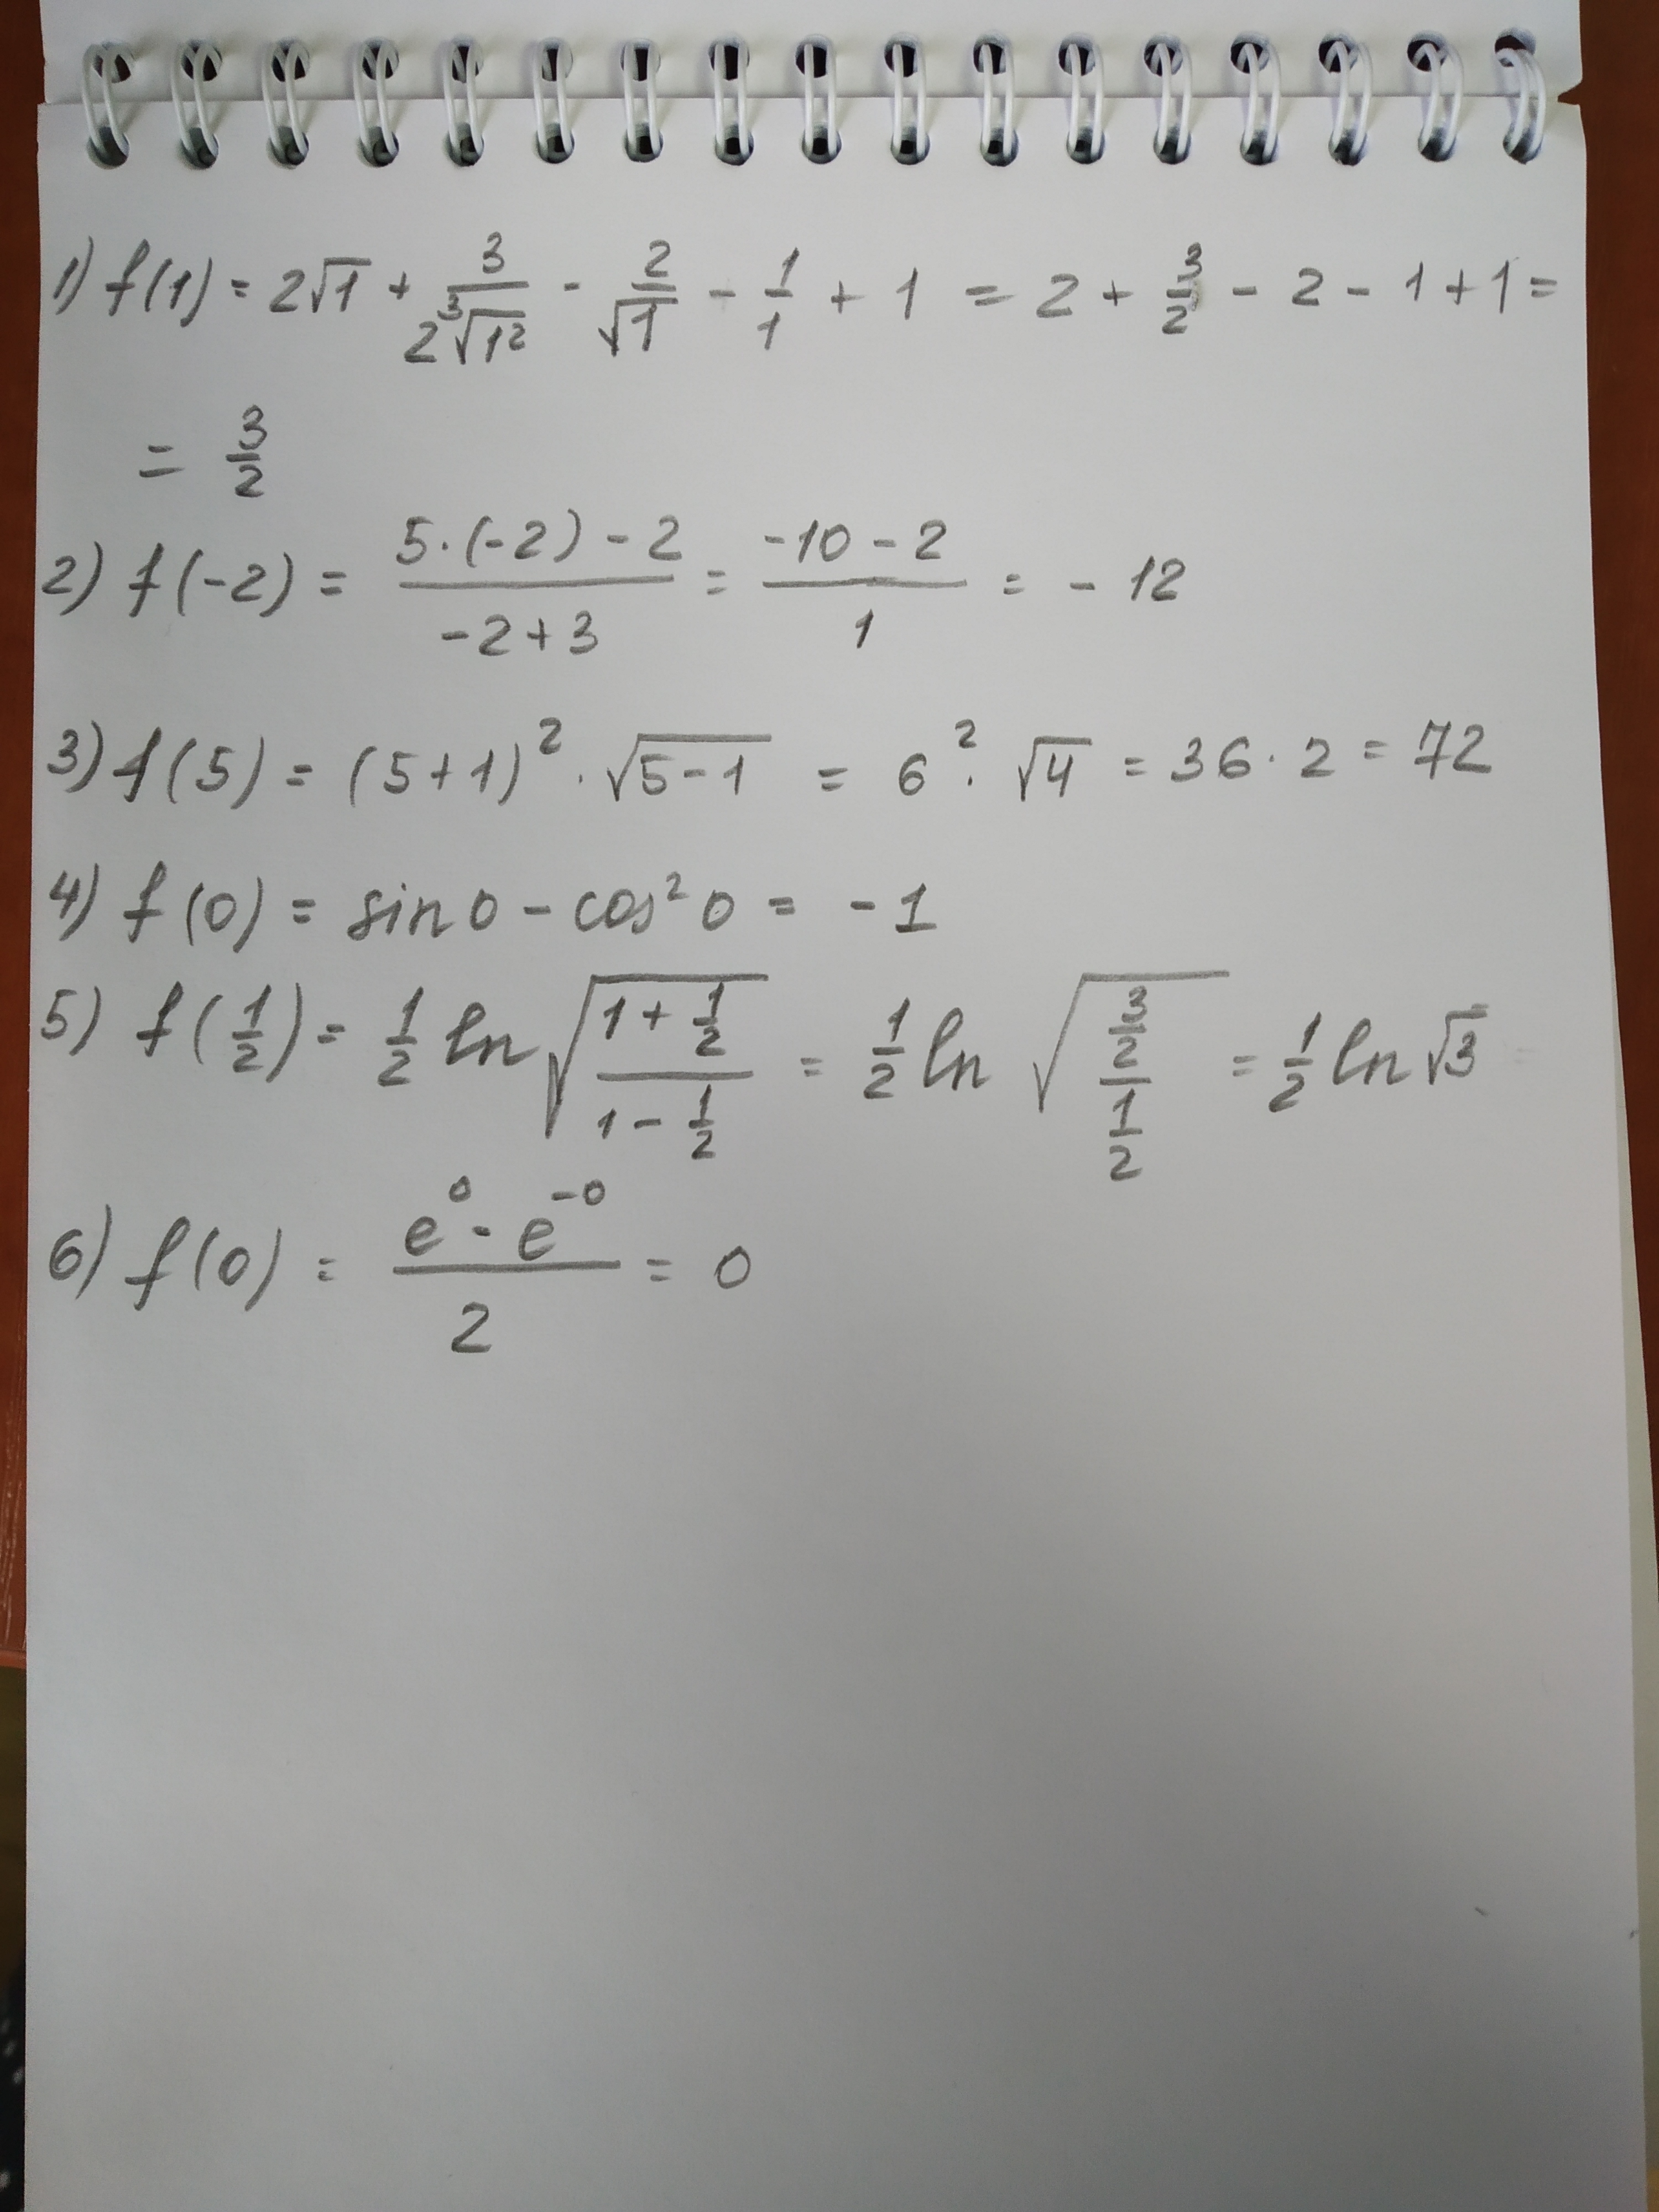 1) f(1) = 2√1 + 3/(2∛(1²)) - 2/√1 - 1/1 + 1 = 2 + 3/2 - 2 - 1 + 1 =
= 3/2
2) f(-2) = (5·(-2) - 2)/(-2+3) = (-10 - 2)/1 = - 12
3) f(5) = (5+1)² · √(5-1) = 6² · √4 = 36 · 2 = 72
4) f(0) = sin 0 - cos² 0 = - 1
5) f(1/2) = 1/2 ln √((1 + 1/2)/(1 - 1/2)) = 1/2 ln √((3/2)/(1/2)) = 1/2 ln √3
6) f(0) = (e⁰ - e⁻⁰)/2 = 0